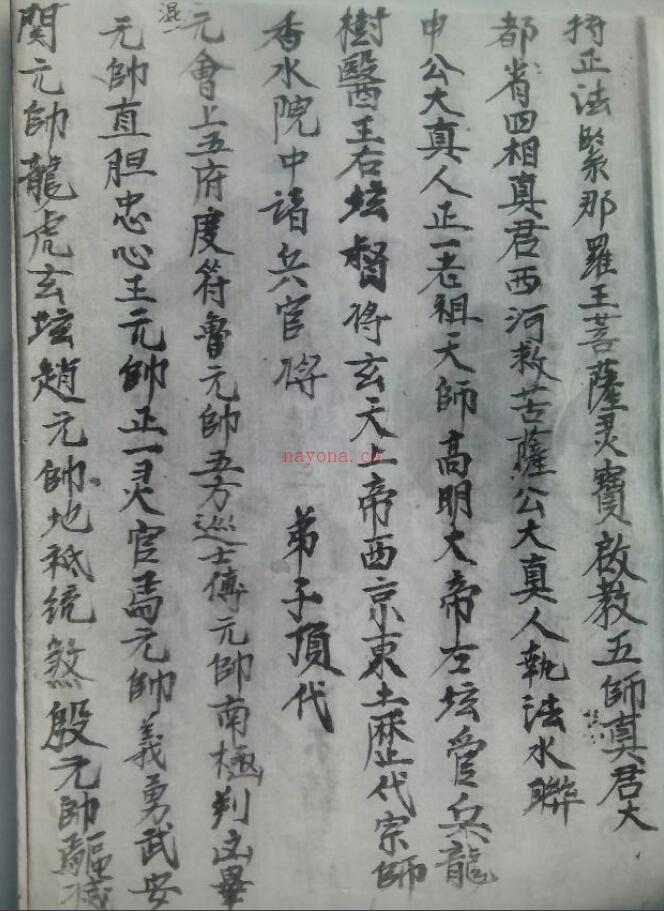 持正法緊那羅王菩薩灵寶啟教五師真君大
都省四相真君西河救苦薩公大真人執法水聯
申公大真人正一老祖天師高明大帝左坛管兵龍
樹醫王右坛督将玄天上帝西京東土歷代宗師
香水院中請兵官将 弟子頂代
混
元會上五府度符魯元帥五方巡士傅元帥南極判凶畢
元帥直胆忠心王元帥正一灵官馬元帥義勇武安
関元帥龍虎玄坛趙元帥地祗統煞殷元帥驅滅
nayona.cn